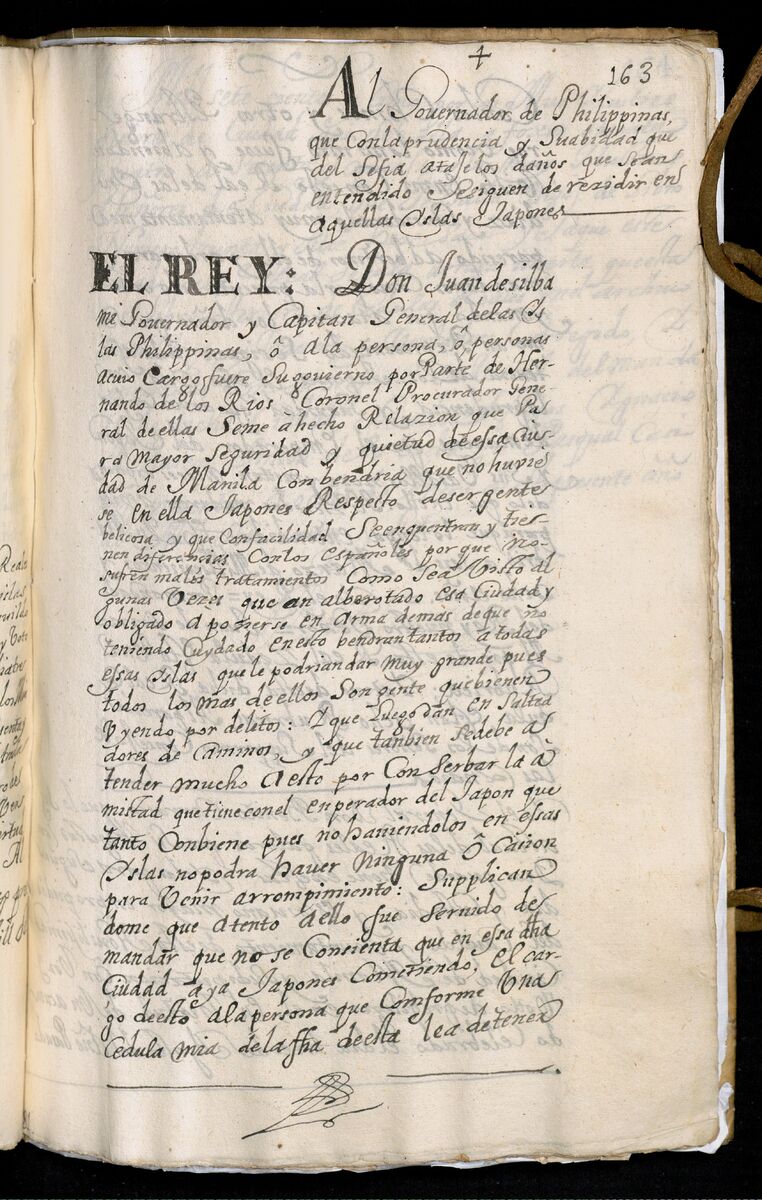 163
Al Governador de Philippinas,
que Con la prudencia y Suabidad que
del Sefia ataje los daños que sean
entendido Sesiguen de rezidir en
aquellas Yslas Japones
EL REY: Don Juan desilba
mi Governador y Capitan General delas Ys
las Philippinas, ô ala persona, ô personas
acuio Cargo fuere Su govierno por Parte de Her-
nando de los Rios Coronel Procurador Gene-
ral de ellas Seme à hecho Relazion que Pa
ra Mayor Seguridad y quietud de essa Ciu-
dad de Manila Conbendria que no huvie
se en ella Japones Respecto deser gente
belicosa y que Confacilidad Seenquentran y tie-
nen diferencias Conlos españoles por que no
sufren malos tratamientos Como sea Visto al
gunas Vezes que an alborotado esa Ciudad y
obligado a ponerse en arma demas deque no
teniendo Cuydado enesto bendran tantos a todas
essas Yslas que le podrian dar Muy grande pues
todos los mas de ellos Son gente que bienen
Uyendo por delitos: Y que luego dan en Saltea
dores de Caminos, y que tanbien sedebe a-
tender mucho aesto por Conserbar la â
mistad que tiene conel enperador del Japon que
tanto Conbiene pues no haviendolos en essas
Yslas no podra haver Ninguna Ocasion
para Venir arrompimiento: Supplican
dome que atento aello fue servido de
mandar que no se Consienta que en essa dha
Ciudad aya Japones Cometiendo, el car-
go deesto ala persona que Comforme Una
Cedula mia dela fha deesta lea detener